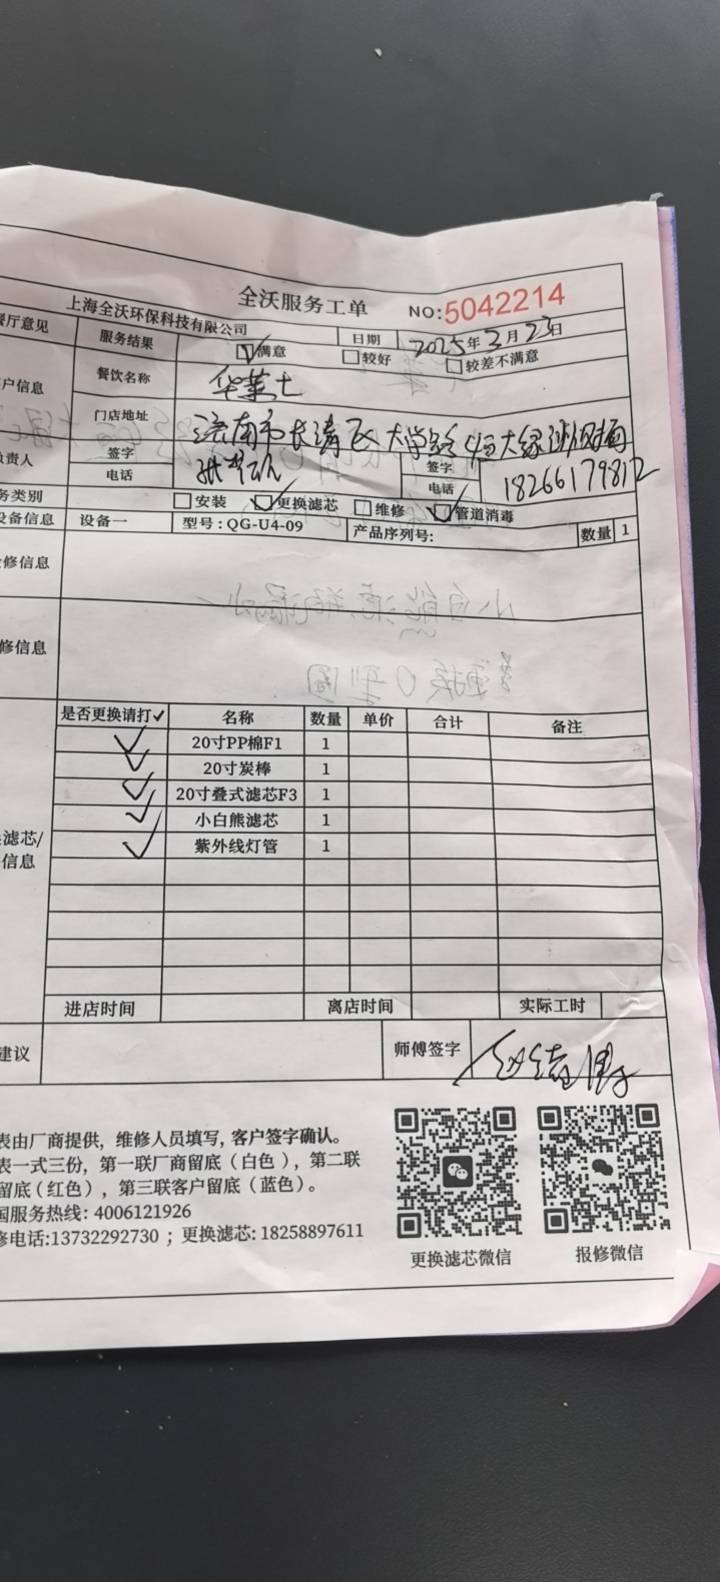 全沃服务工单 NO:5042214
上海全沃环保科技有限公司 日期 2025年3月23日
餐厅意见 服务结果 ☑满意 □较好 □较差不满意
户信息 餐饮名称 华莱士
门店地址 济南市长清区大学路
负责人 签字 签字
电话 电话 18266179812
务类别 □安装 ☑更换滤芯 □维修 ☑管道消毒
设备信息 设备一 型号:QG-U4-09 产品序列号: 数量 1
修信息
修信息
是否更换请打✓ 名称 数量 单价 合计 备注
✓ 20寸PP棉F1 1
✓ 20寸炭棒 1
✓ 20寸叠式滤芯F3 1
✓ 小白熊滤芯 1
✓ 紫外线灯管 1
滤芯/
信息
进店时间 离店时间 实际工时
建议 师傅签字
表由厂商提供, 维修人员填写, 客户签字确认。
表一式三份, 第一联厂商留底(白色), 第二联
留底(红色), 第三联客户留底(蓝色)。
国服务热线: 4006121926
修电话:13732292730 ; 更换滤芯: 18258897611
更换滤芯微信 报修微信